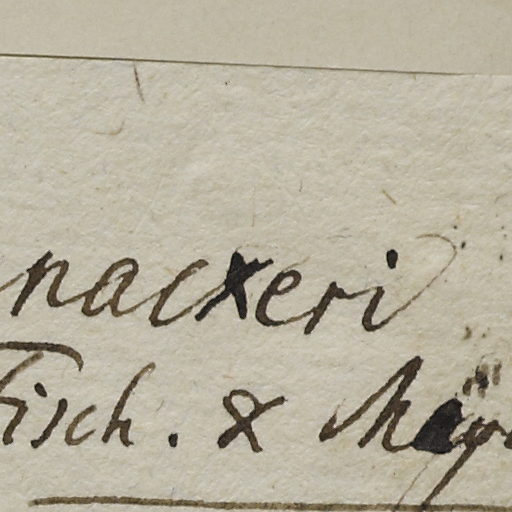 nackeri
Fisch. & Mey